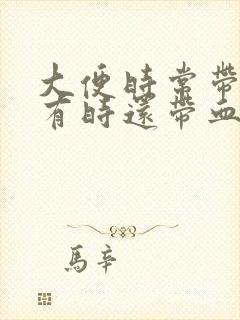 大便時常帶
有時還帶血
馬辛